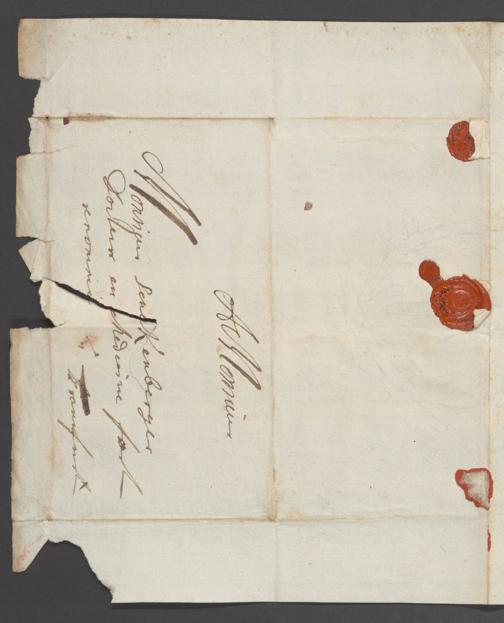 A Monsieur
Monsieur Senckenberger
Docteur en Medecine fort
renommé
à
Francfort